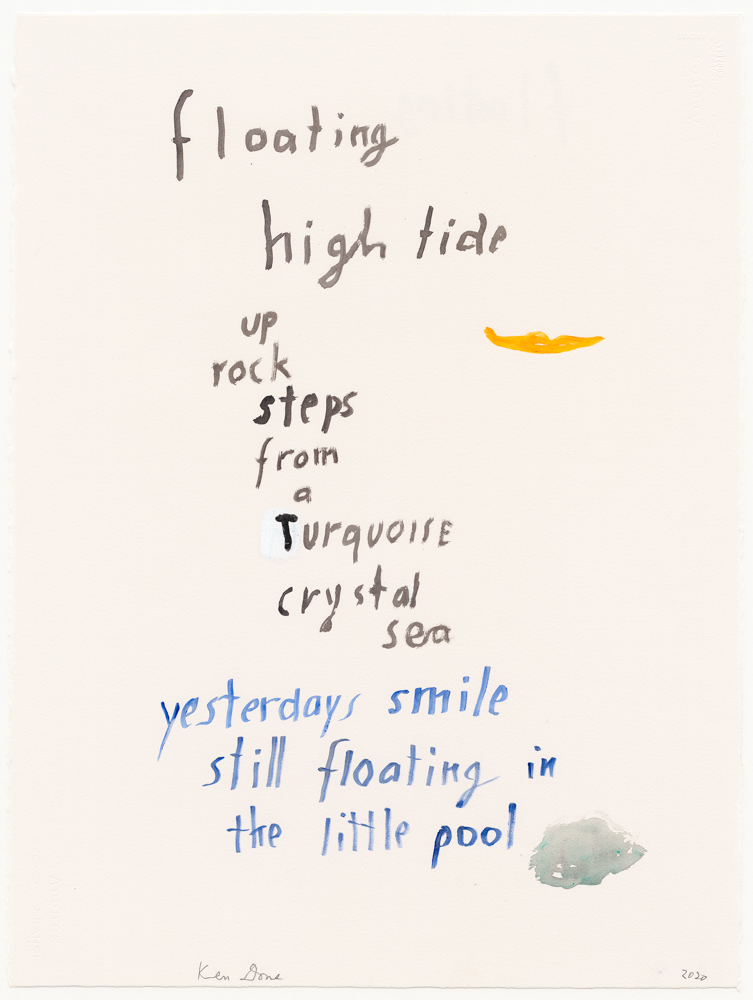 floating
high tide
up
rock
steps
from
a
TurquoISE
crystal
sea
yesterdays smile
still floating in
the little pool
Ken Done 2020